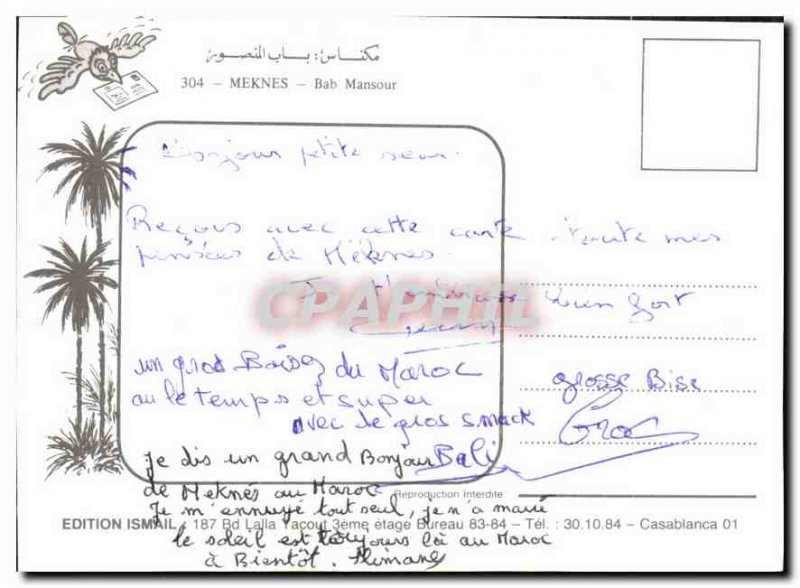 مكناس: باب المنصور
304 – MEKNES – Bab Mansour
Bonjour petite seur.
Reçous avec cette carte toute mes
pensées de Mèknes.
Je t'embrasse bien fort
CPAPHIL
un gros Baiser du Maroc
ou le temps et super
avec de gros smack
grosse Bise
je dis un grand Bonjour Bali
de Meknés au Maroc
Reproduction Interdite
Je m'ennuye tout seul, je n'a
EDITION ISMAIL, 187 Bd Lalla Yacout 3ème étage Bureau 83-84 – Tél. : 30.10.84 – Casablanca 01
le soleil est toujours là au Maroc
à Bientôt. Slimane